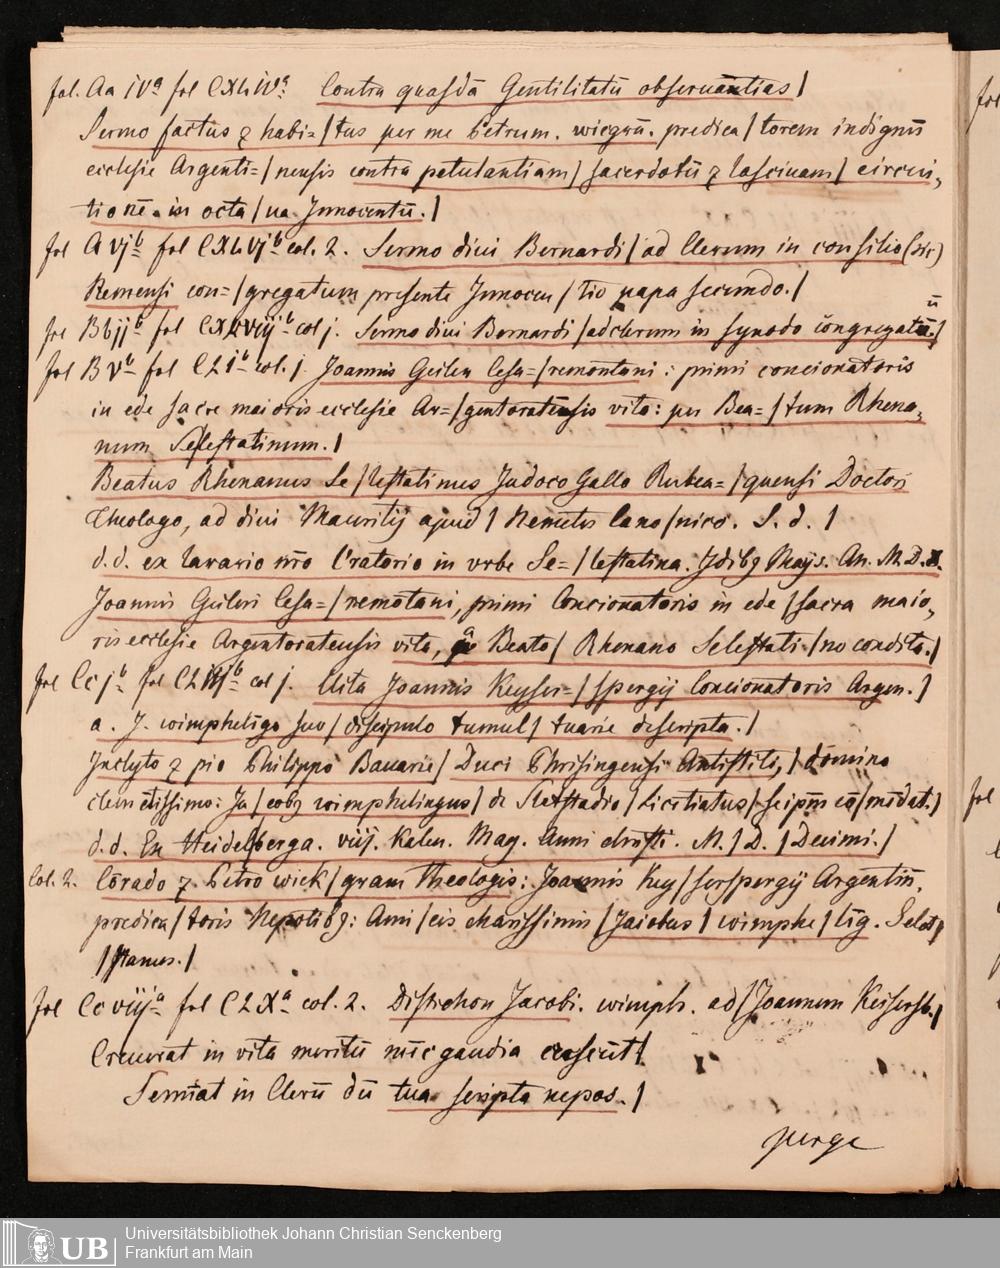 fol. Aa iva fol CXLiva. Contra quasdā Gentilitatū obseruantias/
Sermo factus ⁊ habi=/tus per me Petrum. wicgrā. predica/torem indignū
ecclesie Argenti=/nensis contra petulantiam/ sacerdotū ⁊ lasciuam/ circui,
tionē. in octa/ua Innocentū./
fol A vjb fol CXLvjb col. 2. Sermo diui Bernardi/ad Clerum in consilio (sic)
Remensi con=/gregatum presente Innocen/tio papa secundo./
ū
fol Bbjjb fol CXLviijb col j. Sermo diui Bernardi/ad clerum in synodo cōgregatū./
fol B vb fol CLib col. j. Joannis Geilen Cesa=/remontani: primi concionatoris
in ede sacre maioris ecclesie Ar=/gentoratēsis vita: per Bea=/tum Rhena,
num Selestatinum./
Beatus Rhenanus Se/lestatinus Judoco Gallo Rubea=/quensi Doctori
Theologo, ad diui Mauritij apud/ Nemetes Cano/nico. S. d. /
d. d. ex larario nr̄o Oratorio in vrbe Se=/lestatina. Jdibꝫ Majs. An. M. D. x.
Joannis Geileri Cesa=/remōtani, primi Concionatoris in ede/sacra maio,
ris ecclesie Argentoratensis vita, a Beato/ Rhenano Selestati/no condita./
fol Ccjb fol CLiijb col j. Uita Joannis Keyser=/spergij Concionatoris Argen./
a. J. wimphelīgo suo/discipulo tumul/tuarie descripta./
Jnclyto ⁊ pio Philippo Bauarie/ Duci Phrisingensi Antistiti,/domino
clementissimo: Ja/cobꝫ wimphelingus/ de Sletstadio/Licētiatus/seipm̄ cō/mēdat./
d. d. Ex Heidel/berga. viij. Kalen. Mag. Anni christi. M./D./Decimi./
Col. 2. Cōrado ⁊ Petro wick/gram Theologis: Joannis Key/serspergij Argentin̄.
predica/toris Nepotibꝫ: Ami/cis charissimis/Jacobus/ wimphe/līg. Selest/
/tanus./
fol Cc viija fol CLXa col. 2. Distichon Jacobi. wimph. ad/Joannem Keisersb./
Creuerat in vita meritū nūc gaudia crescūt/
Seminat in Clerū dū tua scripta nepos./
perge
fol
fol
UB
Universitätsbibliothek Johann Christian Senckenberg
Frankfurt am Main